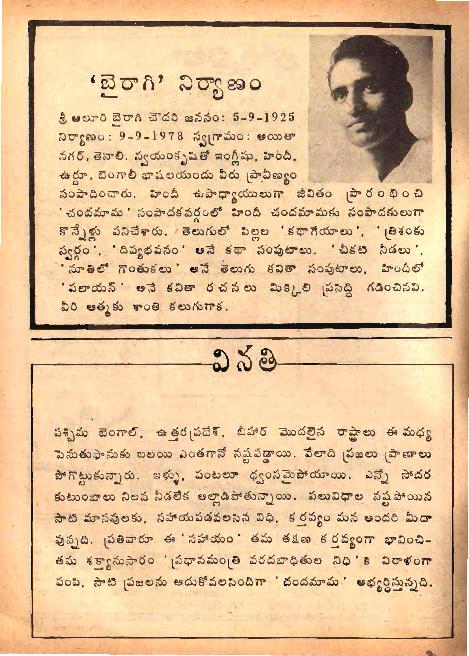 'బైరాగి' నిర్యాణం
శ్రీ ఆలూరి బైరాగి చౌదరి జననం: 5-9-1925
నిర్యాణం: 9-9-1978 స్వగ్రామం: అయితా
నగర్, తెనాలి. స్వయంకృషితో ఇంగ్లీషు, హిందీ,
ఉర్దూ, బెంగాలీ భాషలయందు వీరు ప్రావీణ్యం
సంపాదించారు. హిందీ ఉపాధ్యాయులుగా జీవితం ప్రారంభించి
'చందమామ' సంపాదకవర్గంలో హిందీ చందమామకు సంపాదకులుగా
కొన్నేళ్లు పనిచేశారు. తెలుగులో పిల్లల 'కథాగేయాలు', 'త్రిశంకు
స్వర్గం', 'దివ్యభవనం' అనే కథా సంపుటాలు. 'చీకటి నీడలు',
'నూతిలో గొంతుకలు' అనే తెలుగు కవితా సంపుటాలు, హిందీలో
'పలాయన్' అనే కవితా రచనలు మిక్కిలి ప్రసిద్ధి గడించినవి.
వీరి ఆత్మకు శాంతి కలుగుగాక.
వినతి
పశ్చిమ బెంగాల్, ఉత్తరప్రదేశ్, బీహార్ మొదలైన రాష్ట్రాలు ఈ మధ్య
పెనుతుఫానుకు బలయి ఎంతగానో నష్టపడ్డాయి. వేలాది ప్రజలు ప్రాణాలు
పోగొట్టుకున్నారు. ఇళ్ళు, పంటలూ ధ్వంసమైపోయాయి. ఎన్నో సోదర
కుటుంబాలు నిలవ నీడలేక అల్లాడిపోతున్నాయి. పలువిధాల నష్టపోయిన
సాటి మానవులకు, సహాయపడవలసిన విధి, కర్తవ్యం మన అందరి మీదా
వున్నది. ప్రతివారూ ఈ 'సహాయం' తమ తక్షణ కర్తవ్యంగా భావించి-
తమ శక్త్యానుసారం 'ప్రధానమంత్రి వరదబాధితుల నిధి'కి విరాళంగా
పంపి, సాటి ప్రజలను ఆదుకోవలసిందిగా 'చందమామ' అభ్యర్థిస్తున్నది.